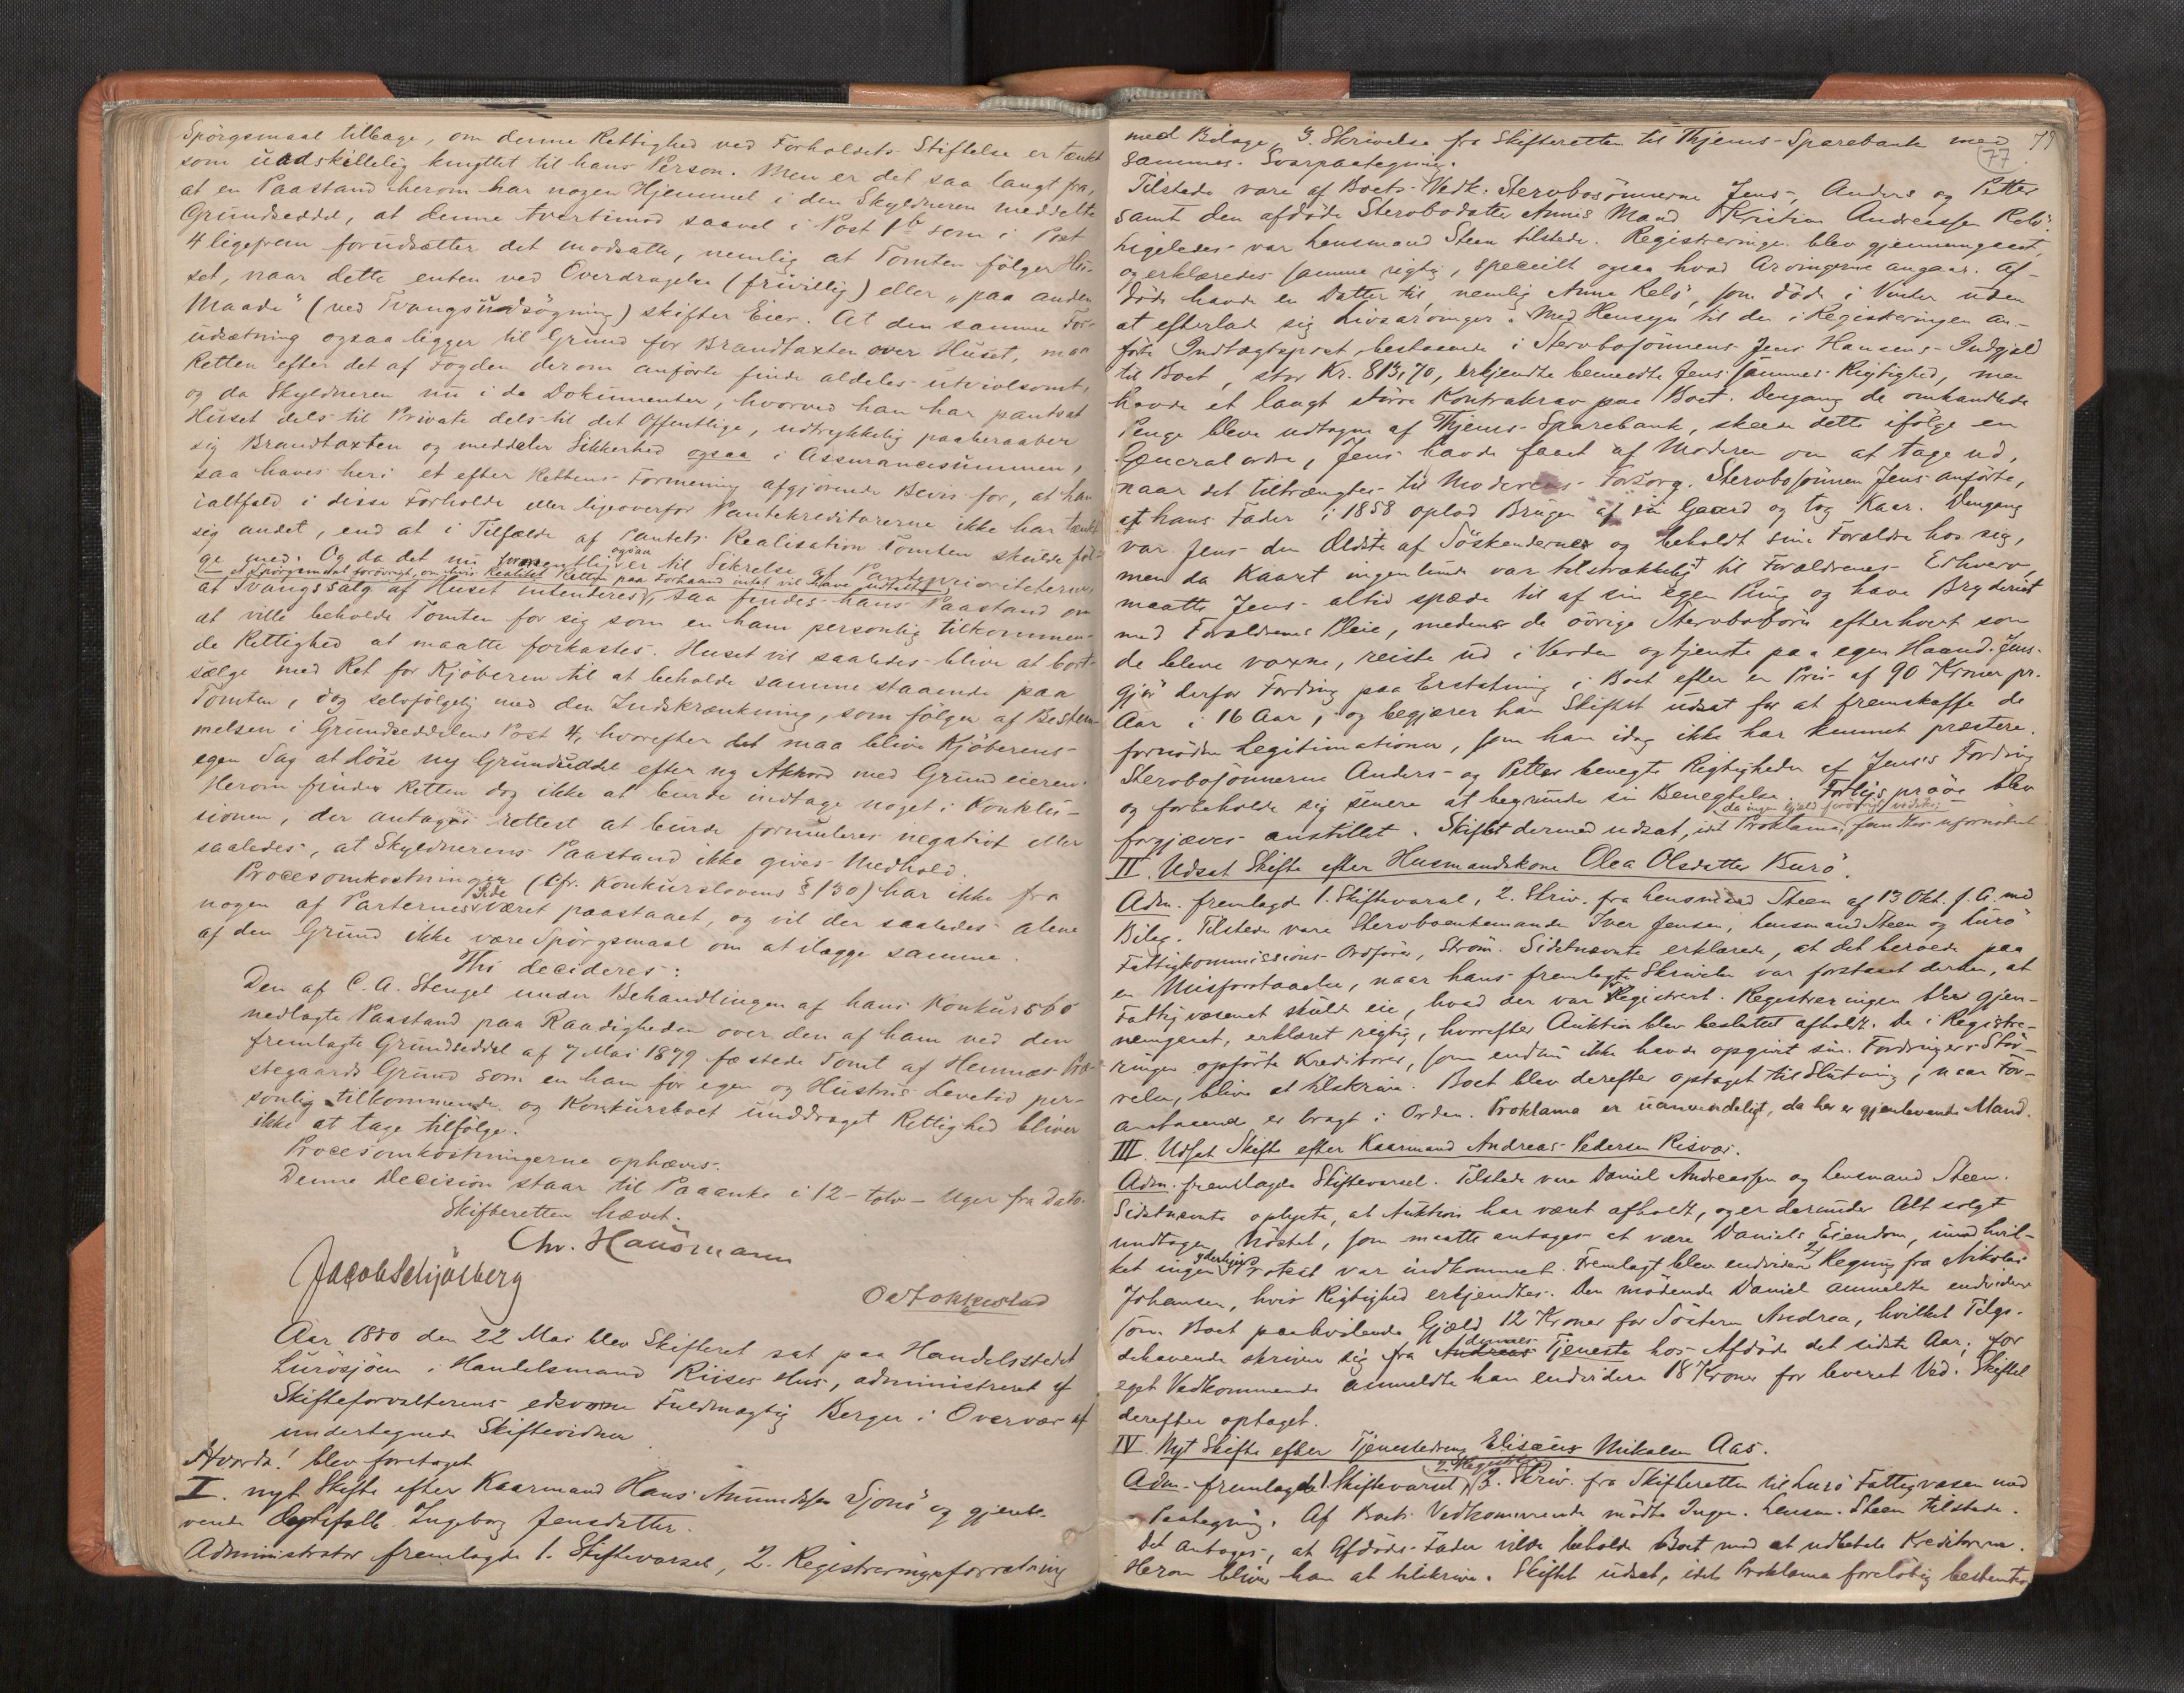 Spörgsmaal tilbage, om denne Rettighed ved Forholdets Stiftelse er tænkt
som uadskillelig knyttet til hans Person. Men er det saa langt fra,
at en Paastand herom har nogen Hjemmel i den Skyldneren meddelte
Grundseddel, at denne tvertimod saavel i Post 1b som i Post
4 ligefrem forudsætter det modsatte, nemlig at Tomten fölger Hu-
set, naar dette enten ved Overdragelse (frivillig) eller "paa anden
Maade" (ved Tvangsudsögning) skifter Eier. At den samme For-
udsætning ogsaa ligger til Grund for Brandtaxten over Huset, maa
Retten efter det af Fogden derom anförte finde aldeles utvivlsomt,
og da Skyldneren nu i de Dokumenter, hvorved han har pantsat
Huset dels til Private dels til det Offentlige, udtrykkelig paaberaaber
sig Brandtaxten og meddeler Sikkerhed ogsaa i Assurancesummen,
saa haves heri et efter Rettens Formening afgjörende Bevis for, at han
ialtfald i disse Forholde eller ligeoverfor Pantekreditorerne ikke har tænkt
sig andet, end at i Tilfælde af Pantets Realisation Tomten skulde föl-
ge med. Og da det nu væsentlig ogsaa er til Sikrelse af Panteprioriteterne,
– et Spörgsmaal forövrigt, om hvis Realitet Retten paa Forhaand intet vil have udtalt –
at Tvangssalg af Huset intenteres, saa findes hans Paastand om
at ville beholde Tomten for sig som en ham personlig tilkommen-
de Rettighed at maatte forkastes. Huset vil saaledes blive at bort-
sælge med Ret for Kjöberen til at beholde samme staaende paa
Tomten, dog selvfölgelig med den Indskrænkning, som fölger af Bestem-
melsen i Grundseddelens Post 4, hvorefter det maa blive Kjöberens
egen Sag at löse ny Grundseddel efter ny Akkord med Grundeieren.
Herom finder Retten dog ikke at burde indtage noget i Konklu-
sionen, der antages rettest at burde formuleres negativt eller
saaledes, at Skyldnerens Paastand ikke gives Medhold.
Procesomkostningerne (cfr. Konkurslovens § 130) har ikke fra
nogen af Parternes Side været paastaaet, og vil der saaledes alene
af den Grund ikke være Spörgsmaal om at ilægge samme.
Thi decideres:
Den af C. A. Stengel under Behandlingen af hans Konkursbo
nedlagte Paastand paa Raadigheden over den af ham ved den
fremlagte Grundseddel af 7 Mai 1879 fæstede Tomt af Hemnæs Præ-
stegaards Grund som en ham for egen og Hustrus Levetid per-
sonlig tilkommende og Konkursboet unddraget Rettighed bliver
ikke at tage tilfölge.
Procesomkostningerne ophæves.
Denne Decision staar til Paaanke i 12 – tolv – Uger fra Dato.
Skifteretten hævet.
Chr. Hausmann
Jacob Schjölberg
Aar 1880 den 22 Mai blev Skifteret sat paa Handelsstedet
Lurösjöen i Handelsmand Riises Hus, administreret af
Skifteforvalterens edsvorne Fuldmægtig Berger i Overvær af
undertegnede Skiftevidner
Hvorda! blev foretaget
I. nyt Skifte efter Kaarmand Hans Amundsen Sjonö og gjenle-
vende Ægtefælle Ingeborg Jensdatter.
Administrator fremlagde 1. Skiftevarsel, 2. Registreringsforretning
79
77
med Bilage, 3. Skrivelse fra Skifteretten til Thjems Sparebank med
sammes Svarpaategning.
Tilstede vare af Boets Vedk. Stervbosönnerne Jens, Anders og Petter
samt den afdöde Stervbodatter Annes Mand Kristian Andreassen Relö.
Ligeledes var Lensmand Steen tilstede. Registreringen blev gjennemgaaet,
og erklæredes samme rigtig, specielt ogsaa hvad Arvingerne angaar. Af-
döde havde en Datter til, nemlig Anne Relö, som döde i Vinter uden
at efterlade sig Livsarvinger. Med Hensyn til den i Registreringen an-
förte Indtægtspost bestaaende i Stervbosönnens Jens Hansens Indgjæld
til Boet, stor Kr. 813,70, erkjendte bemeldte Jens sammes Rigtighed, men
havde et langt större Kontrakrav paa Boet. Dengang de omhandlede
Penge bleve udtagne af Thjems Sparebank, skede dette ifölge en
Generalordre, Jens havde faaet af Moderen om at tage ud,
naar det tiltrængtes til Moderens Forsorg. Stervbosönnen Jens anförte,
at hans Fader i 1858 oplod Brugen af sin Gaard og tog Kaar. Dengang
var Jens den ældste af Söskenderne og beholdt sine Forældre hos sig,
men da Kaaret ingenlunde var tilstrækkeligt til Forældrenes Erhverv,
maatte Jens altid spæde til af sin egen Pung og have Bryderiet
med Forældrenes Pleie, medens de övrige Stervbobörn efterhvert som
de bleve voxne, reiste ud i Verden og tjente paa egen Haand. Jens
gjör derfor Fordring paa Erstatning i Boet efter en Pris af 90 Kroner pr.
Aar i 16 Aar, og begjærer han Skiftet udsat for at fremskaffe de
fornödne Legitimationer, som han idag ikke har kunnet præstere.
Stervbosönnerne Anders og Petter benegte Rigtigheden af Jens's Fordring
og forbeholde sig senere at begrunde sin Benegtelse. Forligspröve blev
forgjæves anstillet. Skiftet dermed udsat, idet Proklama, da ingen Gjæld forövrigt vides, fandtes ufornödent
II. Udsat Skifte efter Husmandskone Olea Olsdatter Burö.
Adm. fremlagde 1. Skiftevarsel, 2. Skriv. fra Lensmand Steen af 13 Okt. f. A. med
Bilag. Tilstede vare Stervboenkemanden Iver Jensen, Lensmand Steen og Lurö
Fattigkommissions Ordförer, Ström. Sidstnævnte erklærede, at det beroede paa
en Misforstaaelse, naar hans fremlagte Skrivelse var forstaaet derhen, at
Fattigvæsenet skulde eie, hvad der var Registreret. Registreringen blev gjen-
nemgaaet, erklæret rigtig, hvorefter Auktion blev besluttet afholdt. De i Registre-
ringen opförte Kreditorer, som endnu ikke havde opgivet sine Fordringers Stör-
relse, blive at tilskrive. Boet blev derefter optaget til Slutning, naar For-
anstaaende er bragt i Orden. Proklama er uanvendeligt, da her er gjenlevende Mand.
III. Udsat Skifte efter Kaarmand Andreas Pedersen Risvær.
Adm. fremlagde Skiftevarsel. Tilstede vare Daniel Andreassen og Lensmand Steen.
Sidstnævnte oplyste, at Auktion har været afholdt, og er derunder Alt solgt
undtagen Nöstet, som maatte antages at være Daniels Eiendom, imod hvil-
ket ingen yderligere Protest var indkommet. Fremlagt blev endvidere 2) Regning fra Nikolai
Johansen, hvis Rigtighed erkjendtes. Den mödende Daniel anmeldte endvidere
som Boet paahvilende Gjæld 12 Kroner for Söstern Andrea, hvilket Tilgo-
dehavende skriver sig fra Andreas dennes Tjeneste hos Afdöde det sidste Aar; for
eget Vedkommende anmeldte han endvidere 18 Kroner for leveret Ved. Skiftet
derefter optaget.
IV. Nyt Skifte efter Tjenestedreng Elisæus Mikalsen Aas.
Adm. fremlagde 1. Skiftevarsel, 2. Registrering 3. Skriv. fra Skifteretten til Lurö Fattigvæsen med
Paategning. Af Boets Vedkommende mödte Ingen. Lensm. Steen tilstede.
Det antages, at Afdödes Fader vilde beholde Boet mod at udbetale Kreditorerne.
Herom bliver han at tilskrive. Skiftet udsat, idet Proklama forelöbig besluttes